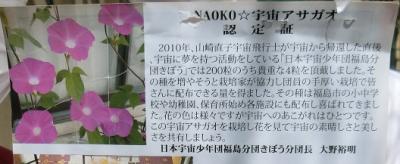 NAOKO☆宇宙アサガオ
認定証
2010年、山崎直子宇宙飛行士が宇宙から帰還した直後、
宇宙に夢を持つ活動をしている「日本宇宙少年団福島分
団きぼう」では200粒のうち貴重な4粒を頂戴しました。そ
の種を増やそうと栽培家が協力し団員の手厚い栽培で皆
さんに配布できる量を得ました。その種は福島市の小中学
校や幼稚園、保育所始め各施設にも配布し喜ばれてきまし
た。花の色は様々ですが宇宙へのあこがれはひとつです。
この宇宙アサガオを栽培し花を見て宇宙の素晴しさと美し
さを共有しましょう。
日本宇宙少年団福島分団きぼう分団長 大野裕明